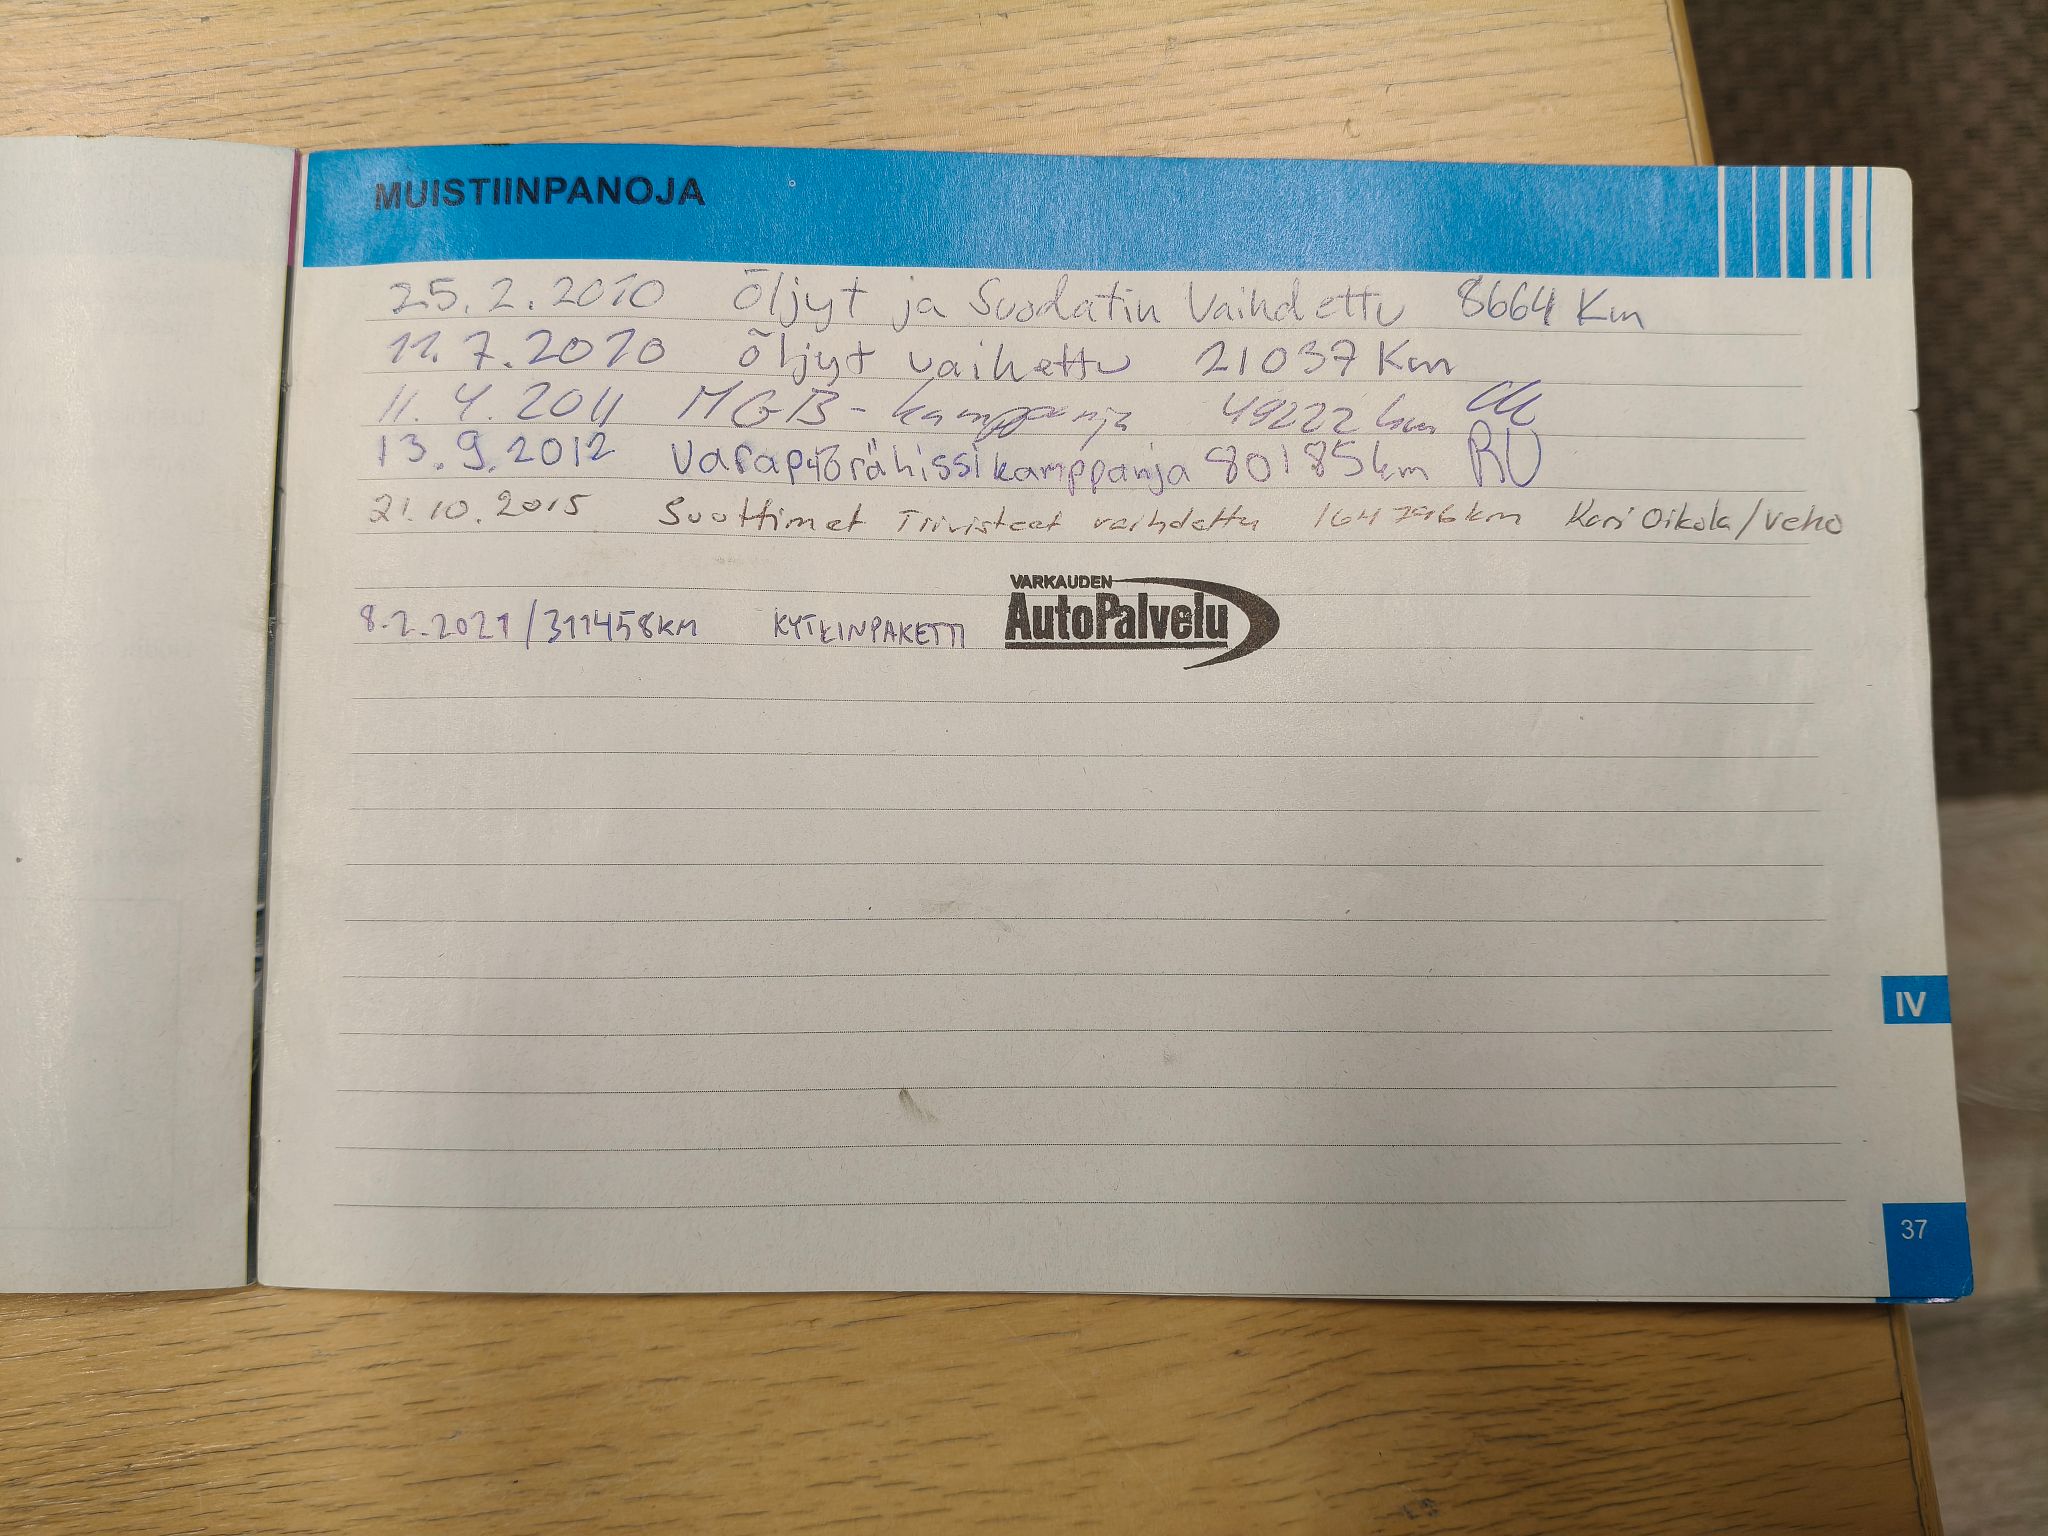 MUISTIINPANOJA
25.2.2010 Öljyt ja Suodatin Vaihdettu 8664 Km
11.7.2010 öljyt vaihettu 21037 Km
11.4.2011 MGB-kamppanja 49222 km
13.9.2012 Varapyörähissikamppanja 80185km RU
21.10.2015 Suuttimet Tiivisteet vaihdettu 164796km Kari Oikola/Veho
8.2.2021/311458KM KYTKINPAKETTI VARKAUDEN AutoPalvelu
IV
37